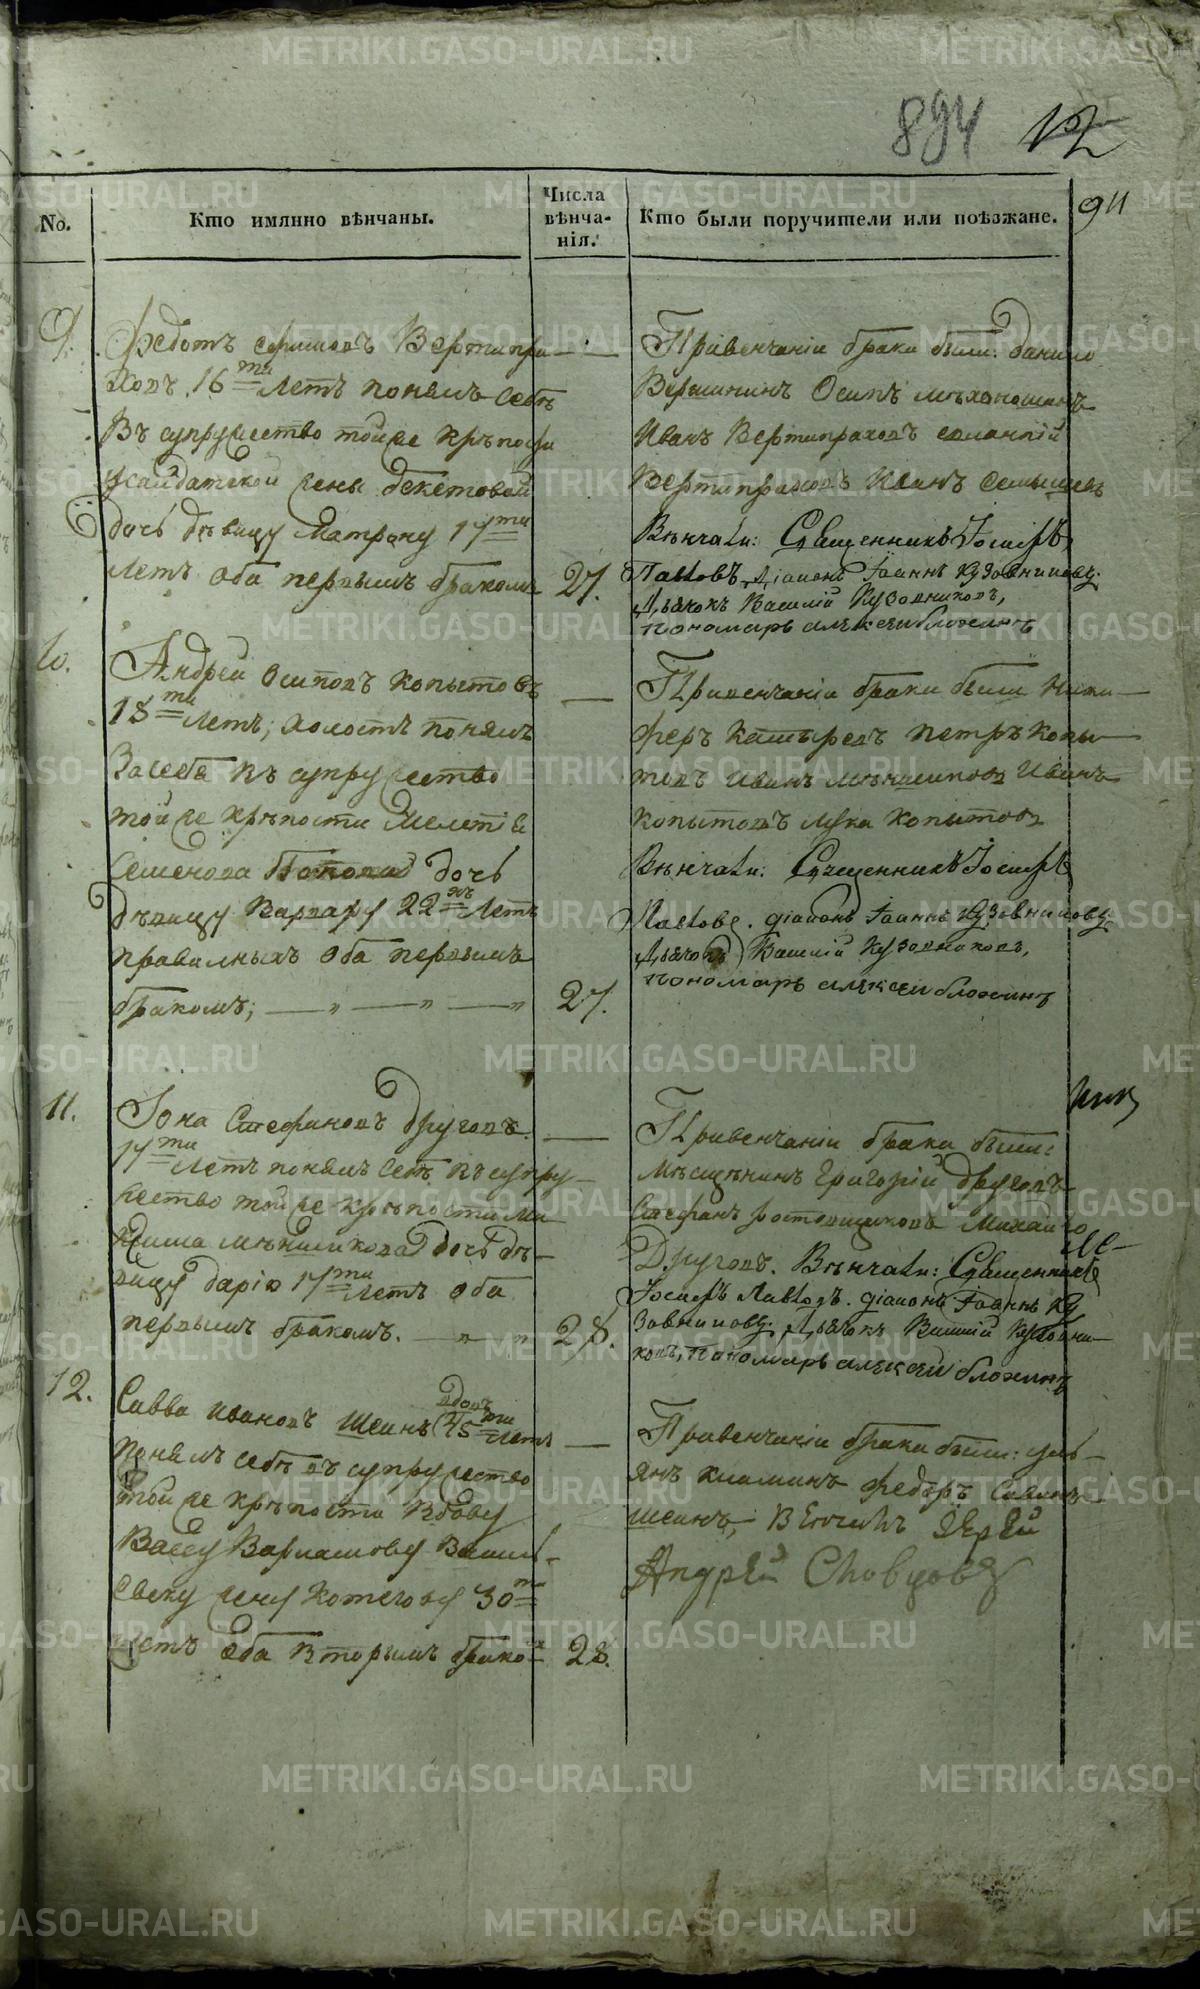 894 12
911
No.
Кто имянно вѣнчаны.
Числа
вѣнча-
нія.
Кто были поручители или поѣзжане.
9.
Федотъ Вертипра
ховъ 16 ти Летъ понялъ себѣ
Въ супружество тойже крѣпости
жены Бекетовой
дочь дѣвицу Матрону 17 ти
Летъ оба первымъ бракомъ
27.
Привенчаніи брака были: данило
Вершининъ Осипъ
Иванъ Вертипраховъ
Вертипраховъ Иванъ
Вѣнчали: Священникъ Іосифъ
Павловъ, діаконъ Іоаннъ Кузовниковъ.
Дьячокъ Василій Кузовниковъ,
пономарь алѣксеи блохинъ
10.
Андрей Осиповъ Копытовъ
18 ти Летъ, холостъ понялъ
За себя въ супружество
той же крѣпости Мелетіа
Семенова Попова дочь
дѣвицу Варвару 22 хъ Летъ
правилныхъ оба первымъ
бракомъ;
27.
Привенчаніи брака были Ники
феръ Каширевъ петръ Копы
товъ Иванъ Иванъ
копытовъ лука копытовъ
Вѣнчали: Священникъ Іосифъ
Павловъ. діаконъ Іоаннъ Кузовниковъ.
Дьячокъ Василій Кузовниковъ,
пономарь алѣксеи блохинъ
11.
Іона Стефановъ Друговъ.
17 ти Летъ понялъ себѣ въ супру
жество тойже крѣпости
дочь дѣ
вицу Дарію 17 ти Летъ оба
первымъ бракомъ.
28.
Привенчаніи брака были:
Мѣщѣнинъ Григорій Друговъ
Стефанъ ростовщиковъ Михайло
Друговъ. Вѣнчали: Священникъ
Іосифъ Павловъ. діаконъ Іоаннъ Ку
зовниковъ, Дьячокъ Василій Кузовни
ковъ, пономарь алѣксеи блохинъ
12.
Савва Ивановъ Шеинъ вдовъ 45 ти Летъ
понялъ себѣ въ супружество
той же крѣпости вдову
Вассу Варламову
жену Котегову 30 ти
Летъ оба вторымъ брако
28.
Привенчаніи брака были: уль
янъ федоръ Савинъ
шеинъ, Венчалъ Іерей
Андрей Словцовъ
METRIKI.GASO-URAL.RU